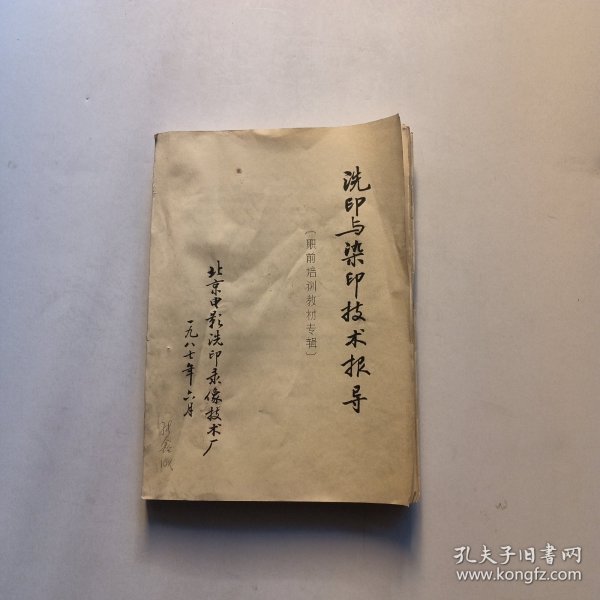 洗印与染印技术报导
〔职前培训教材专辑〕
北京电影洗印录像技术厂
一九八七年六月
孔夫子旧书网
www.kongfz.com